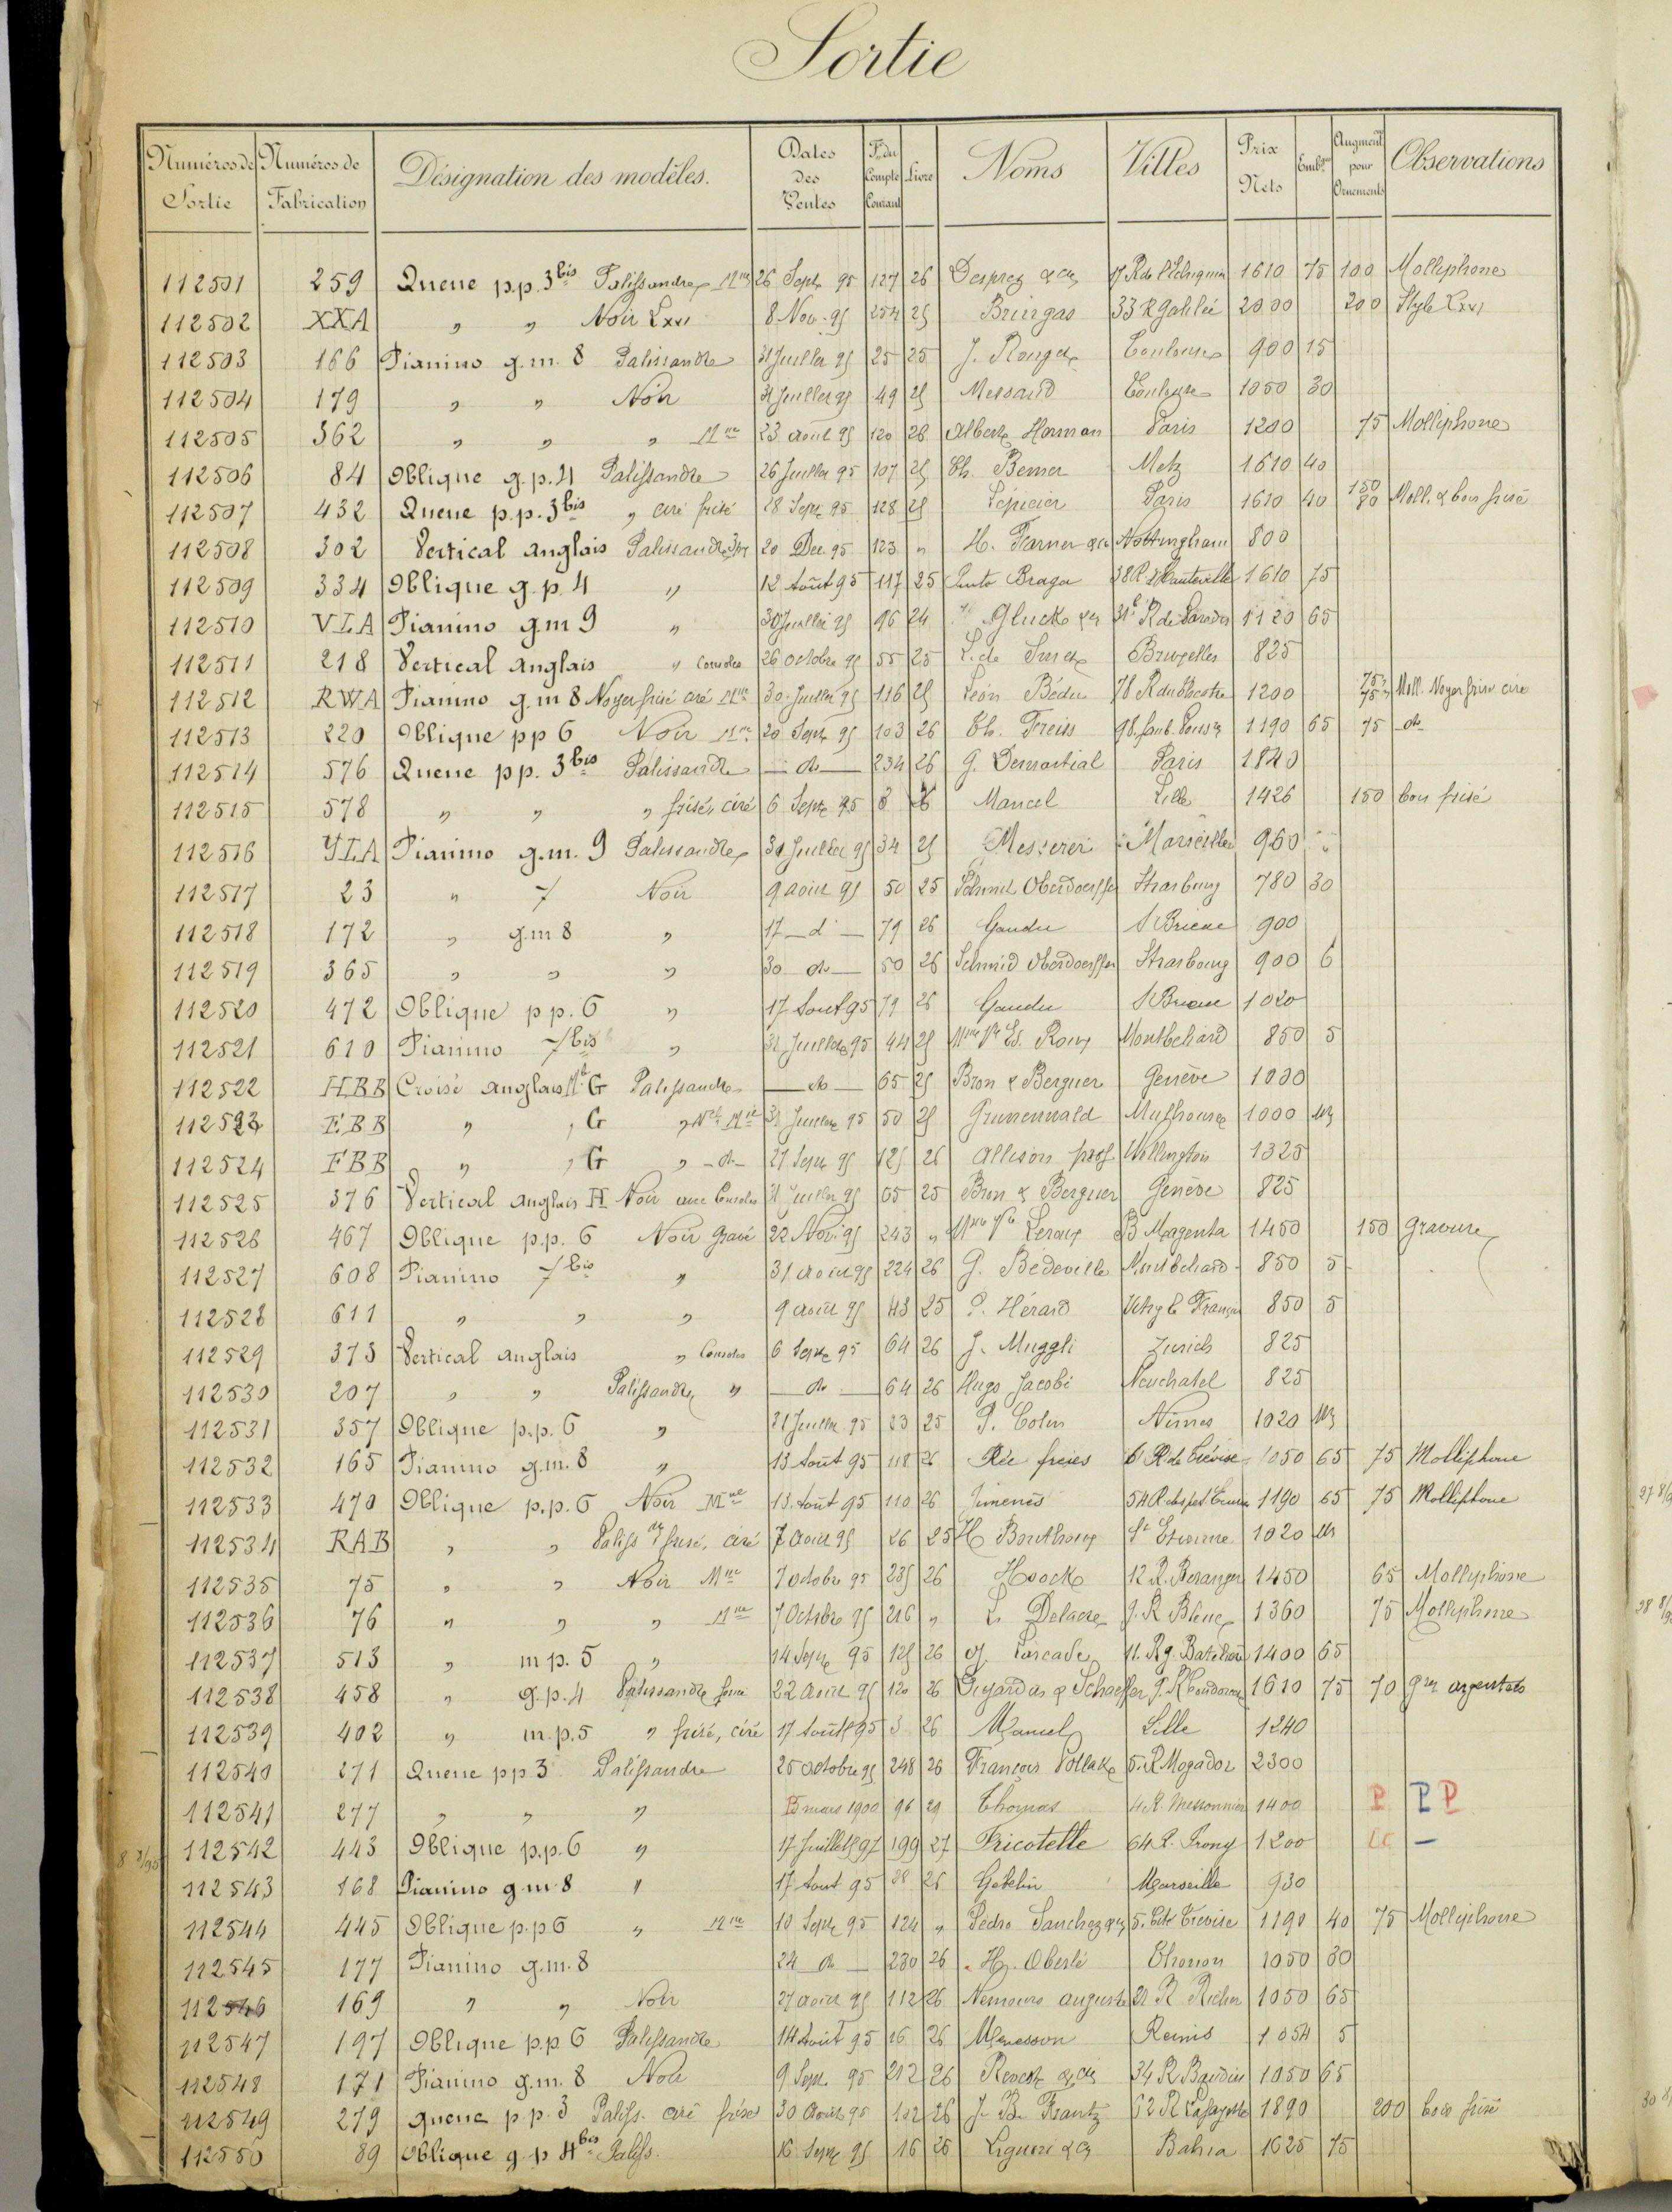 Sortie
Numéros de Sortie Numéros de Fabrication Désignation des modèles. Dates des Ventes Fo. du Compte Courant Livre Noms Villes Prix Nets Embge Augmentn pour Ornements Observations
112501 259 Queue p.p. 3bis Palissandre Mne 26 Sept 95 127 26 Desprez & Cie 17 R de l'Echiquier 1610 75 100 Molliphone
112502 XXA " " Noir Lxvi 8 Nov. 95 254 25 33 R Galilée 2000 200 Style Lxvi
112503 166 Pianino g.m. 8 Palissandre 31 Juillet 95 25 25 J. Rouget Toulouse 900 15
112504 179 " " Noir 31 Juillet 95 49 25 Messaud Toulouse 1050 30
112505 362 " " " Mne 23 août 95 120 26 Albert Herman Paris 1200 75 Molliphone
112506 84 Oblique g.p. 4 Palissandre 26 Juillet 95 107 25 Ch. Berner Metz 1610 40
112507 432 Queue p.p. 3bis " ciré frisé 28 Sept 95 128 25 Lépicier Paris 1610 40 150 80 Moll. & bois frisé
112508 302 Vertical anglais Palissandre 20 Dec 95 123 " H. Farner & Cie Nottingham 800
112509 334 Oblique g.p. 4 " 12 Août 95 117 25 Pinto Braga 38 R d'Hauteville 1610 75
112510 VLA Pianino g.m 9 " 30 Juillet 95 96 24 Gluck & Cie R de Paradis 1120 65
112511 218 Vertical anglais " Consoles 26 octobre 95 55 25 L. de Smet Bruxelles 825
112512 RWA Pianino g.m 8 Noyer frisé ciré Mne 30 Juillet 95 116 25 Léon Bédu 78 R du Bac 1200 75 75 Moll. Noyer frisé ciré
112513 220 Oblique pp 6 Noir Mne 20 Sept 95 103 26 Th. Freiss 98. faub. Poiss. 1190 65 75 do
112514 576 Queue pp. 3bis Palissandre — do — 234 26 G. Dermartial Paris 1840
112515 578 " " " frisé, ciré 6 Sept 95 3 26 Mancel Lille 1426 150 bois frisé
112516 YLA Pianino g.m. 9 Palissandre 31 Juillet 95 34 25 Messerer Marseille 960
112517 23 " 7 Noir 9 août 95 50 25 Schmid Oberdoerffer Strasbourg 780 30
112518 172 " g.m 8 " 17 — do — 79 26 Gaudu St Brieuc 900
112519 365 " " " 30 do — 50 26 Schmid Oberdoerffer Strasbourg 900 6
112520 472 Oblique pp. 6 " 17 Août 95 79 26 Gaudu St Brieuc 1020
112521 610 Pianino 7bis " 31 Juillet 95 44 25 Mme Ve Ed. Roux Montbeliard 850 5
112522 HBB Croisé anglais Mle G Palissandre — do — 65 25 Bron & Berguer Genève 1000
112523 EBB " " G " Mne 31 Juillet 95 50 25 Grunenwald Mulhouse 1000
112524 FBB " " G " — do — 27 Sept 95 125 26 Allison prof Wellington 1325
112525 376 Vertical anglais H Noir avec Consoles 31 Juillet 95 65 25 Bron & Berguer Genève 825
112526 467 Oblique p.p. 6 Noir Gravé 22 Nov. 95 243 " Mme Ve Leroux B Magenta 1450 150 gravure
112527 608 Pianino 7bis " 31 août 95 224 26 G. Bédeville Montbeliard 850 5
112528 611 " " " 9 août 95 43 25 P. Hérard Vitry le François 850 5
112529 373 Vertical anglais " Consoles 6 Sept 95 64 26 J. Muggli Zurich 825
112530 207 " " Palissandre " — do — 64 26 Hugo Jacobi Neuchatel 825
112531 357 Oblique p.p. 6 " 31 Juillet 95 23 25 P. Colin Nimes 1020
112532 165 Pianino g.m. 8 " 13 Août 95 118 26 Rée frères 6 R de Trévise 1050 65 75 Molliphone
112533 470 Oblique p.p. 6 Noir Mne 13 Août 95 110 26 Jimenès 54 R des pet. Ecuries 1190 65 75 Molliphone
112534 RAB " " Paliss dre frisé, ciré 7 août 95 26 25 H. Bouthoux St Etienne 1020
112535 75 " " Noir Mne 7 octobre 95 235 26 Hoocke 12 R. Beranger 1450 65 Molliphone
112536 76 " " " Mne 7 Octobre 95 216 " L. Delacre 9. R Bleue 1360 75 Molliphone
112537 513 " m p. 5 " 14 Sept 95 125 26 J. Larcade 11. R g. Batelière 1400 65
112538 458 " g.p. 4 Palissandre 22 août 95 120 26 Gujardin & Schaeffer 9. R Condorcet 1610 75 70 grn argentées
112539 402 " m.p. 5 " frisé, ciré 17 Août 95 3 26 Mancel Lille 1240
112540 271 Queue pp 3 Palissandre 25 octobre 95 248 26 François Pollak 5. R Mogador 2300
112541 277 " " " 15 mars 1900 96 29 Thomas 4 R. Messonnier 1400 P P P
112542 443 Oblique p.p. 6 " 17 Juillet 97 199 27 Tricotelle 64 R. Prony 1200 —
112543 168 Pianino g.m 8 " 17 Août 95 38 26 Gebelin Marseille 930
112544 445 Oblique p.p 6 " Mne 10 Sept 95 124 " Pedro Sanchez & Cie 5. Cité Trévise 1190 40 75 Molliphone
112545 177 Pianino g.m. 8 24 do — 230 26 H. Oberlé Thonon 1050 30
112546 169 " " Noir 27 août 95 112 26 Nemours auguste 21 R Richer 1050 65
112547 197 Oblique p.p 6 Palissandre 14 Août 95 16 26 Menesson Reims 1054 5
112548 171 Pianino g.m. 8 Noir 9 Sept. 95 212 26 34 R Baudin 1050 65
112549 279 queue p.p. 3 Paliss. ciré frisé 30 août 95 102 26 J. B. Frantz 62 R Lafayette 1890 200 bois frisé
112550 89 Oblique g p 4bis Paliss. 16 Sept 95 16 26 Liguori & Cie Bahia 1625 75